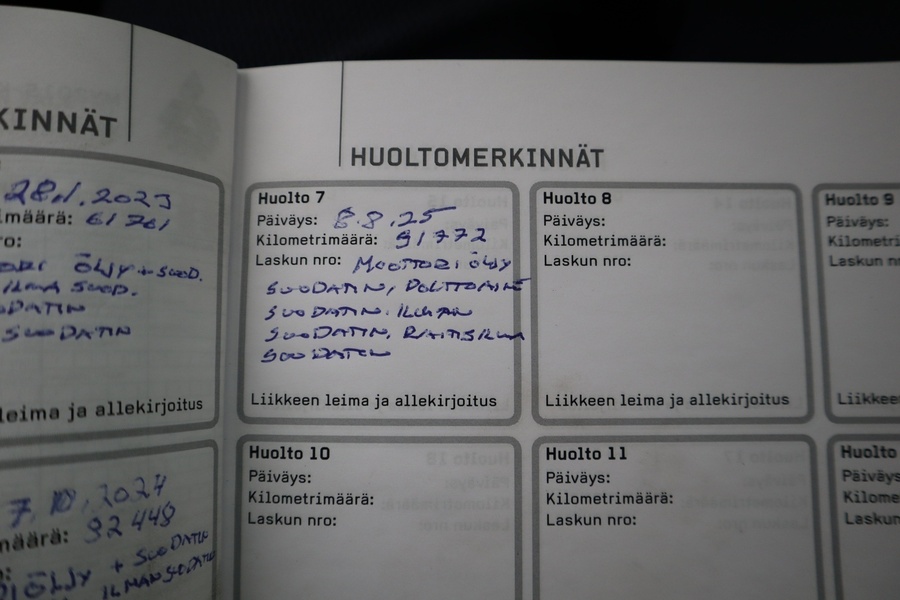 KINNÄT
28.1.2023
imäärä: 61761
ro:
ÖLJY + SUOD.
ILMA SUOD.
SUODATIN
leima ja allekirjoitus
7.10.2024
määrä: 92448
ÖLJY + SUODATIN
ILMANSUODATIN
HUOLTOMERKINNÄT
Huolto 7
Päiväys: 8.8.25
Kilometrimäärä: 91772
Laskun nro: MOOTTORIÖLJY
SUODATIN, POLTTOAINE
SUODATIN. ILMAN
SUODATIN. RAITISILMA
SUODATIN
Liikkeen leima ja allekirjoitus
Huolto 8
Päiväys:
Kilometrimäärä:
Laskun nro:
Liikkeen leima ja allekirjoitus
Huolto 9
Päiväys:
Kilometri
Laskun n
Liikkee
Huolto 10
Päiväys:
Kilometrimäärä:
Laskun nro:
Huolto 11
Päiväys:
Kilometrimäärä:
Laskun nro:
Huolto
Päiväys
Kilome
Laskun